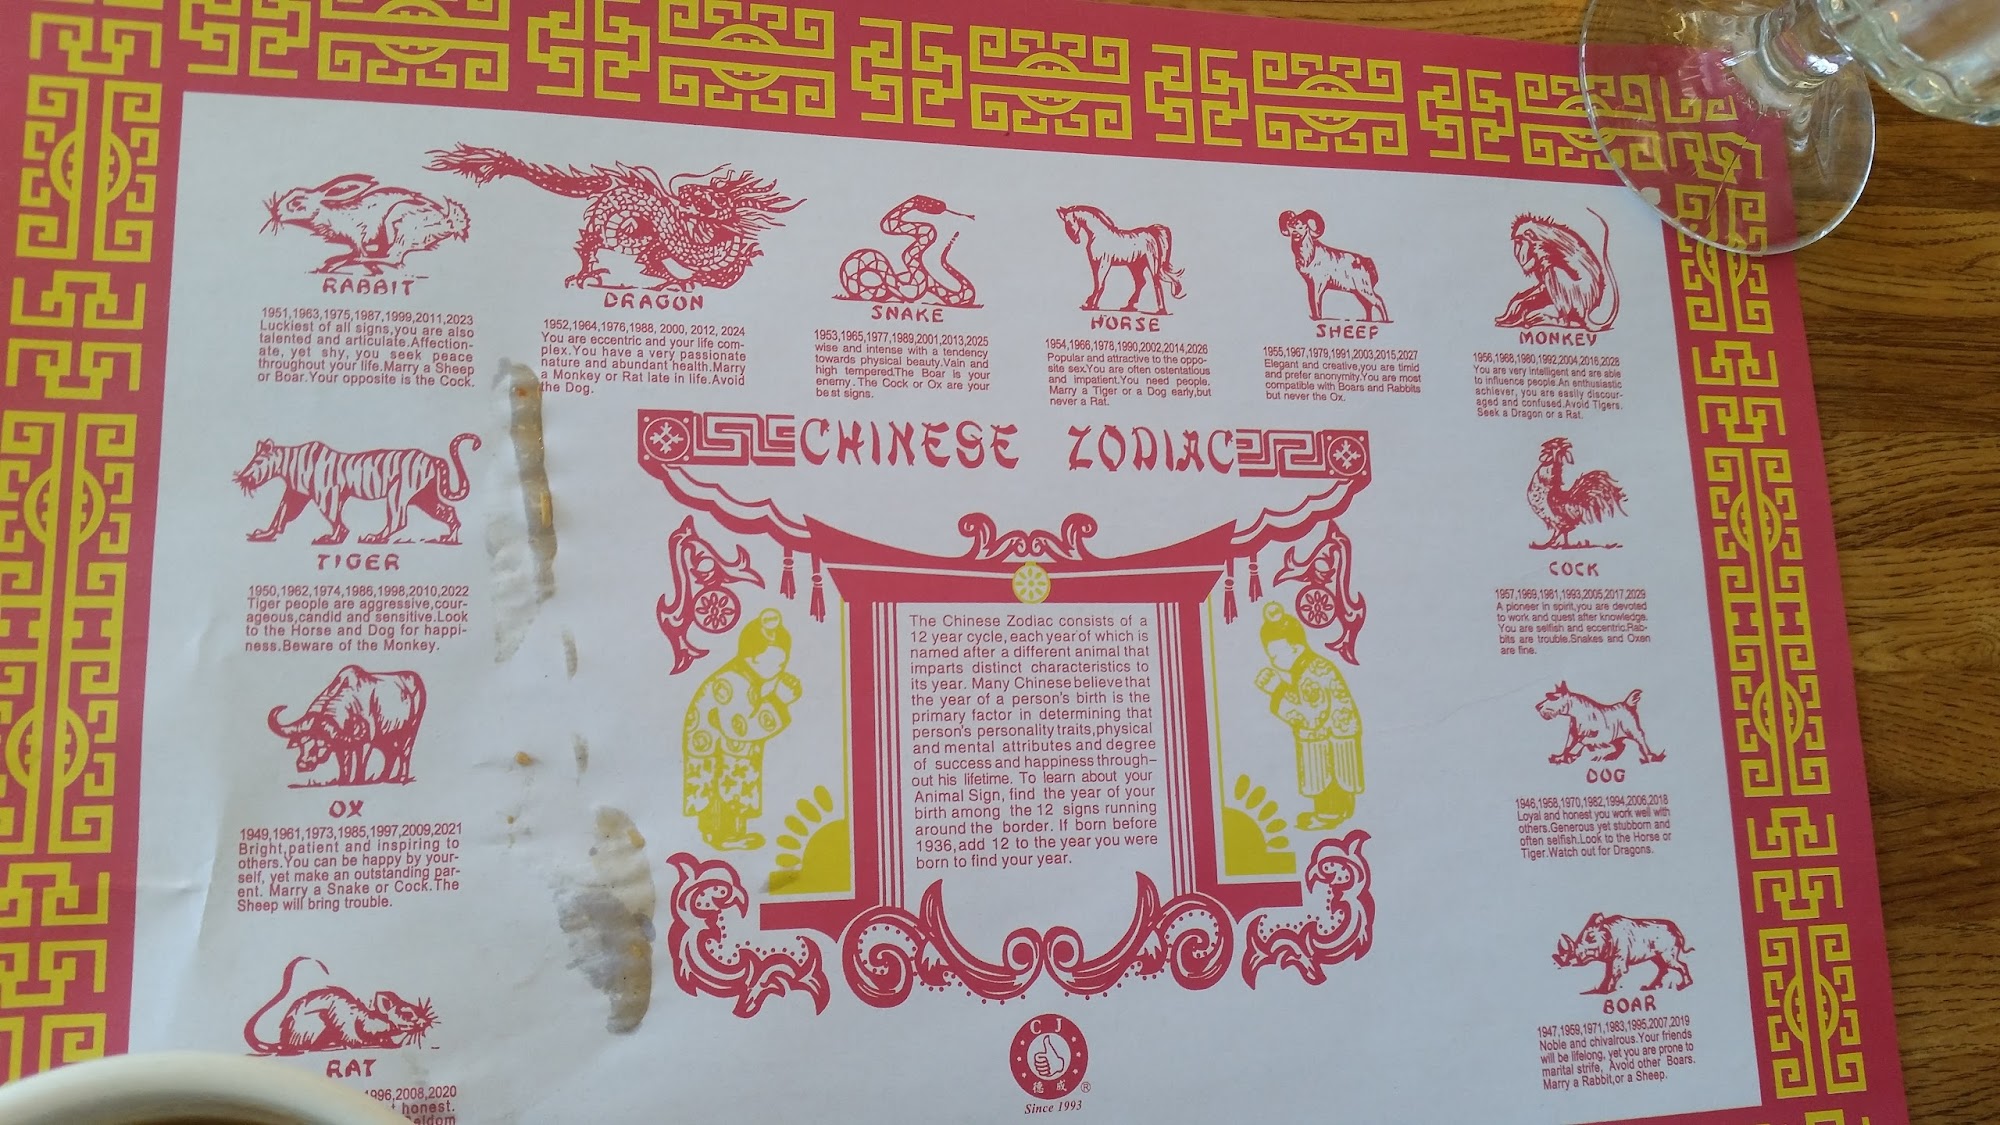 RABBIT
1951,1963,1975,1987,1999,2011,2023
Luckiest of all signs,you are also
talented and articulate.Affection-
ate, yet shy, you seek peace
throughout your life.Marry a Sheep
or Boar.Your opposite is the Cock.
DRAGON
1952,1964,1976,1988, 2000, 2012, 2024
You are eccentric and your life com-
plex.You have a very passionate
nature and abundant health.Marry
a Monkey or Rat late in life.Avoid
the Dog.
SNAKE
1953,1965,1977,1989,2001,2013,2025
wise and intense with a tendency
towards physical beauty.Vain and
high tempered.The Boar is your
enemy. The Cock or Ox are your
best signs.
HORSE
1954,1966,1978,1990,2002,2014,2026
Popular and attractive to the oppo-
site sex.You are often ostentatious
and impatient.You need people.
Marry a Tiger or a Dog early,but
never a Rat.
SHEEP
1955,1967,1979,1991,2003,2015,2027
Elegant and creative,you are timid
and prefer anonymity.You are most
compatible with Boars and Rabbits
but never the Ox.
MONKEY
1956,1968,1980,1992,2004,2016,2028
You are very intelligent and are able
to influence people.An enthusiastic
achiever, you are easily discour-
aged and confused.Avoid Tigers.
Seek a Dragon or a Rat.
CHINESE ZODIAC
TIGER
1950,1962,1974,1986,1998,2010,2022
Tiger people are aggressive,cour-
ageous,candid and sensitive.Look
to the Horse and Dog for happi-
ness.Beware of the Monkey.
COCK
1957,1969,1981,1993,2005,2017,2029
A pioneer in spirit,you are devoted
to work and quest after knowledge.
You are selfish and eccentric.Rab-
bits are trouble.Snakes and Oxen
are fine.
The Chinese Zodiac consists of a
12 year cycle, each year of which is
named after a different animal that
imparts distinct characteristics to
its year. Many Chinese believe that
the year of a person's birth is the
primary factor in determining that
person's personality traits,physical
and mental attributes and degree
of success and happiness through-
out his lifetime. To learn about your
Animal Sign, find the year of your
birth among the 12 signs running
around the border. If born before
1936,add 12 to the year you were
born to find your year.
OX
1949,1961,1973,1985,1997,2009,2021
Bright,patient and inspiring to
others.You can be happy by your-
self, yet make an outstanding par-
ent. Marry a Snake or Cock.The
Sheep will bring trouble.
DOG
1946,1958,1970,1982,1994,2006,2018
Loyal and honest you work well with
others.Generous yet stubborn and
often selfish.Look to the Horse or
Tiger.Watch out for Dragons.
BOAR
1947,1959,1971,1983,1995,2007,2019
Noble and chivalrous.Your friends
will be lifelong, yet you are prone to
marital strife, Avoid other Boars.
Marry a Rabbit,or a Sheep.
RAT
1996,2008,2020
honest.
Seldom
CJ
德 威 ®
Since 1993